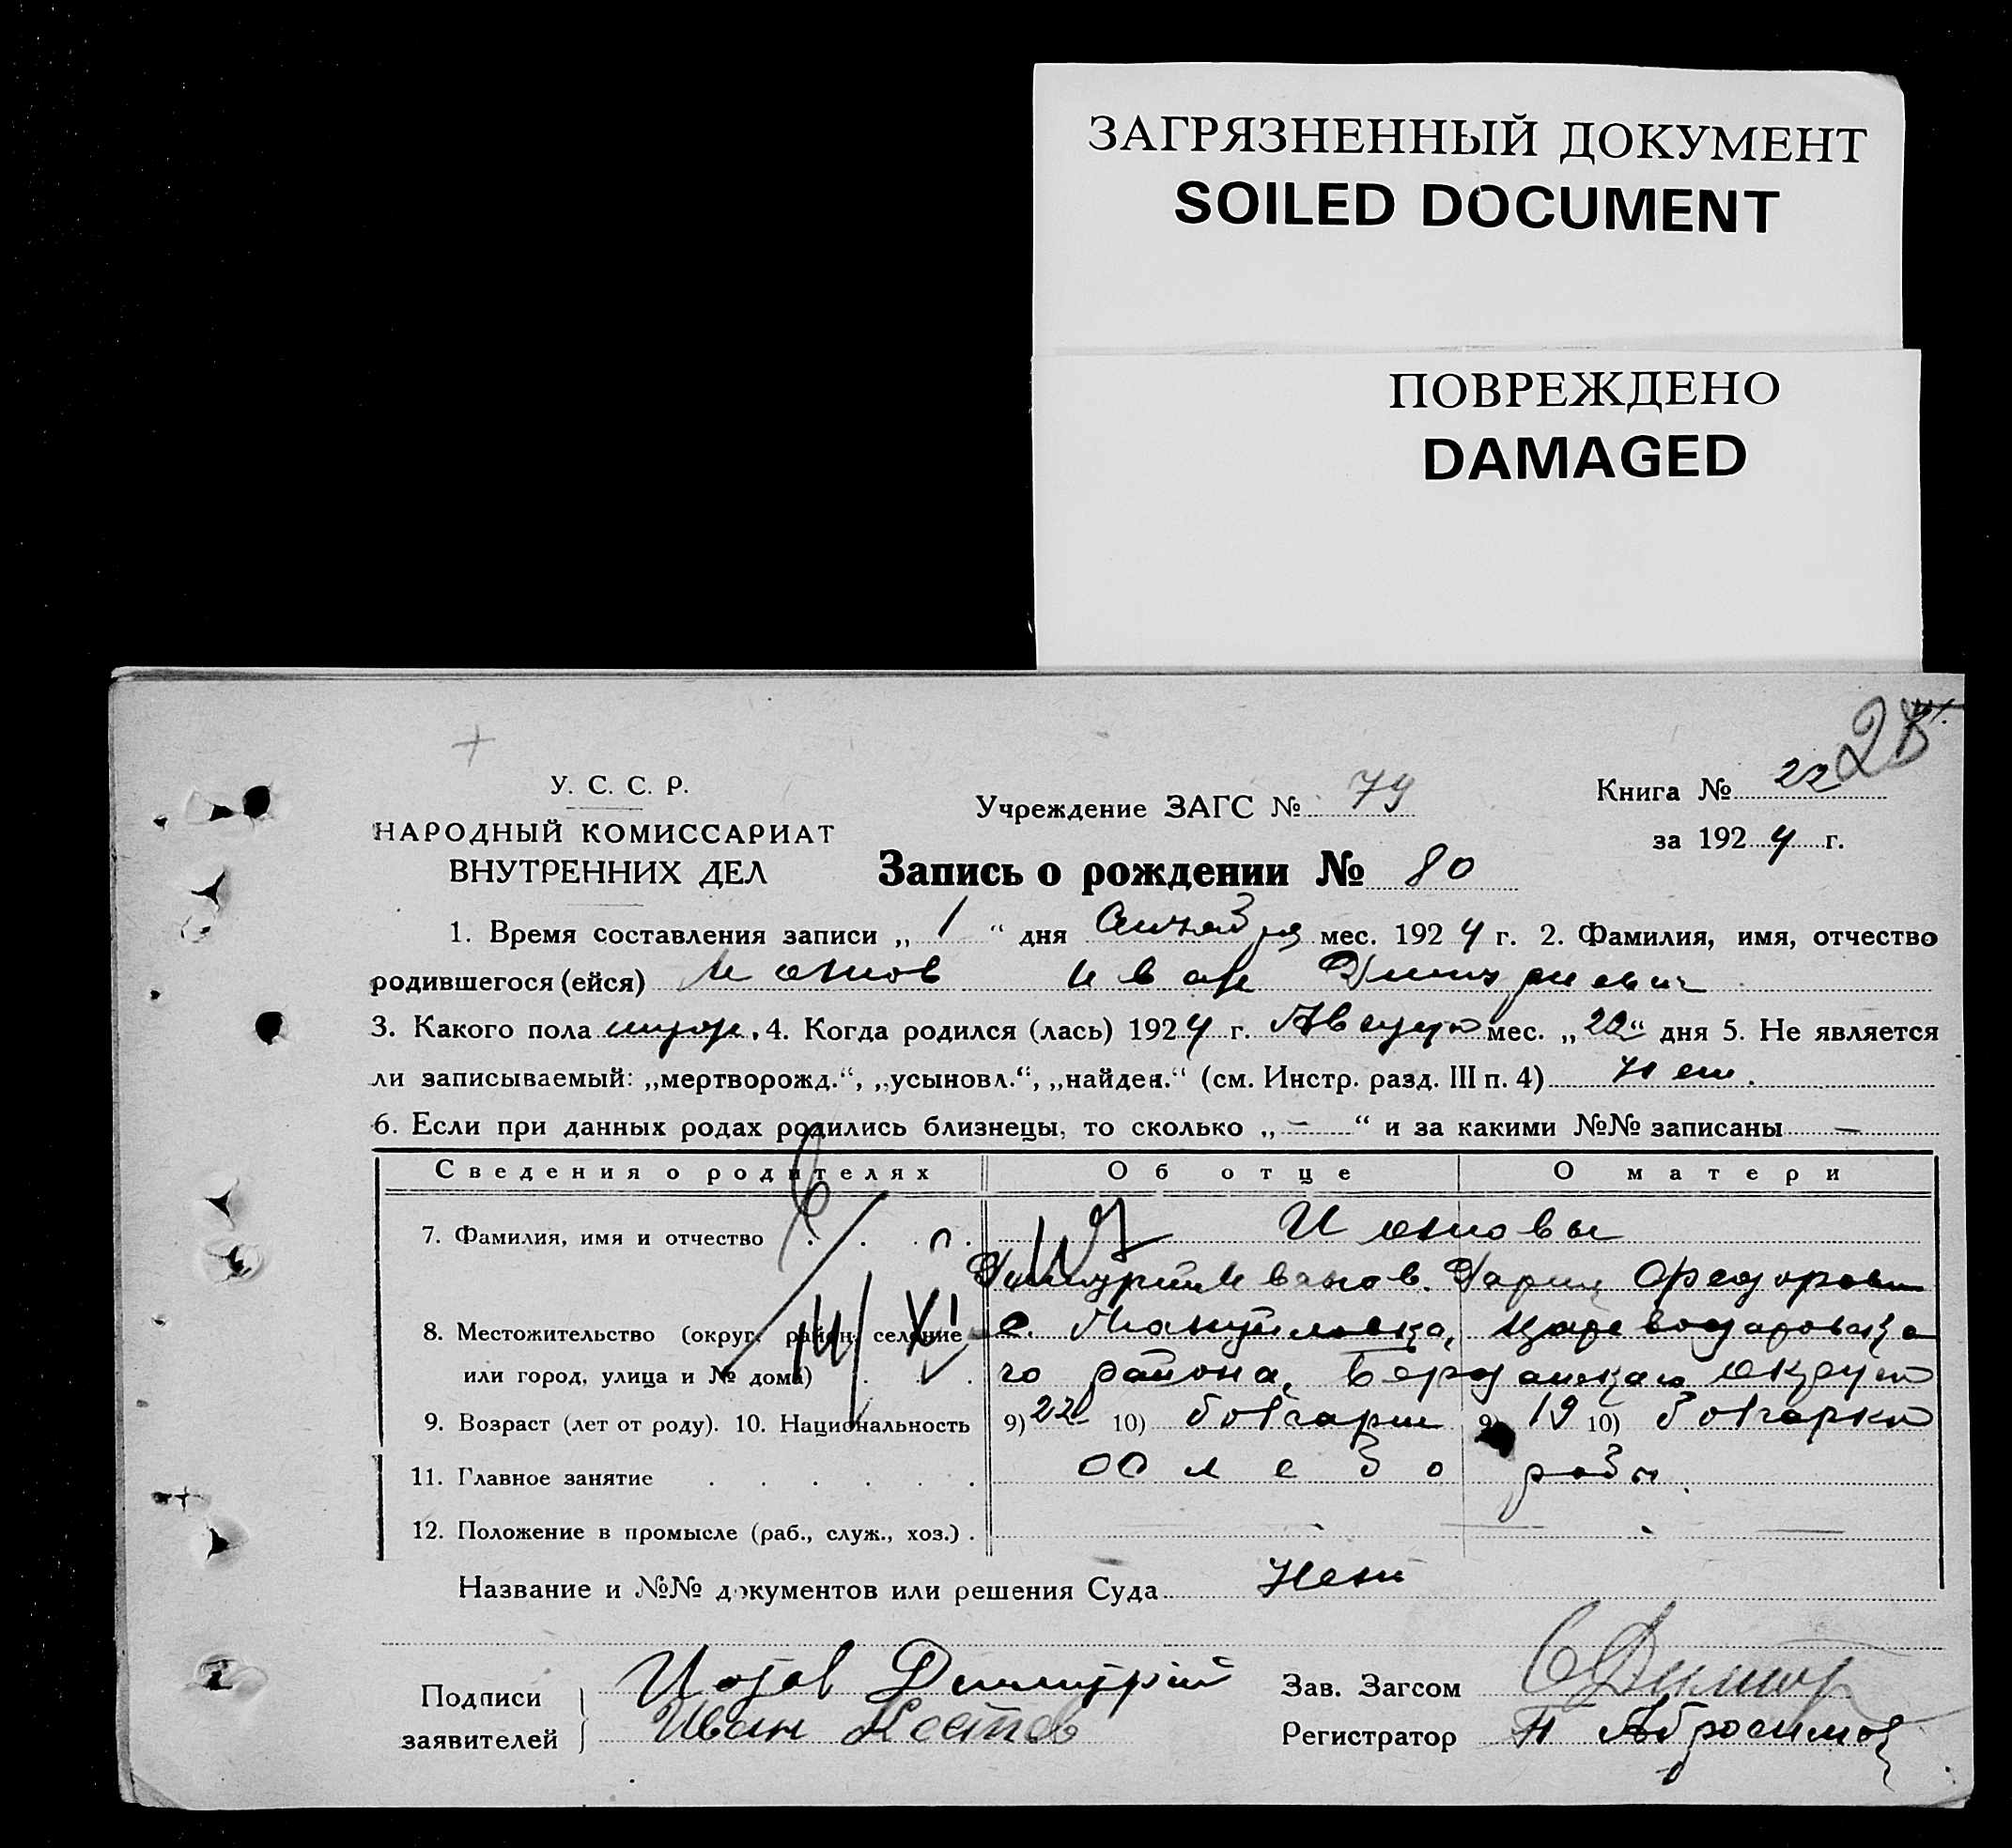 ЗАГРЯЗНЕННЫЙ ДОКУМЕНТ
SOILED DOCUMENT
ПОВРЕЖДЕНО
DAMAGED
У. С. С. Р.
НАРОДНЫЙ КОМИССАРИАТ
ВНУТРЕННИХ ДЕЛ
Учреждение ЗАГС № 79
Книга № 22
за 1924 г.
Запись о рождении № 80
1. Время составления записи „ 1 “ дня мес. 1924 г. 2. Фамилия, имя, отчество
родившегося (ейся) Иван Димитриевич
3. Какого пола 4. Когда родился (лась) 1924 г. Август мес. „20“ дня 5. Не является
ли записываемый: „мертворожд.“, „усыновл.“, „найден.“ (см. Инстр. разд. III п. 4) Нет.
6. Если при данных родах родились близнецы, то сколько „ — “ и за какими №№ записаны —
Сведения о родителях Об отце О матери
7. Фамилия, имя и отчество
Димитрий Иванов. Федоров
8. Местожительство (округ, район, селение с. Мануйловка,
или город, улица и № дома) го района, Бердянского округа
9. Возраст (лет от роду). 10. Национальность 9) 22 10) болгарин 9) 19 10) болгарка
11. Главное занятие хлебо робы
12. Положение в промысле (раб., служ., хоз.) . — — —
Название и №№ документов или решения Суда Нет
Подписи
заявителей
Димитрий
Иван Костов
Зав. Загсом
Регистратор Абросимов